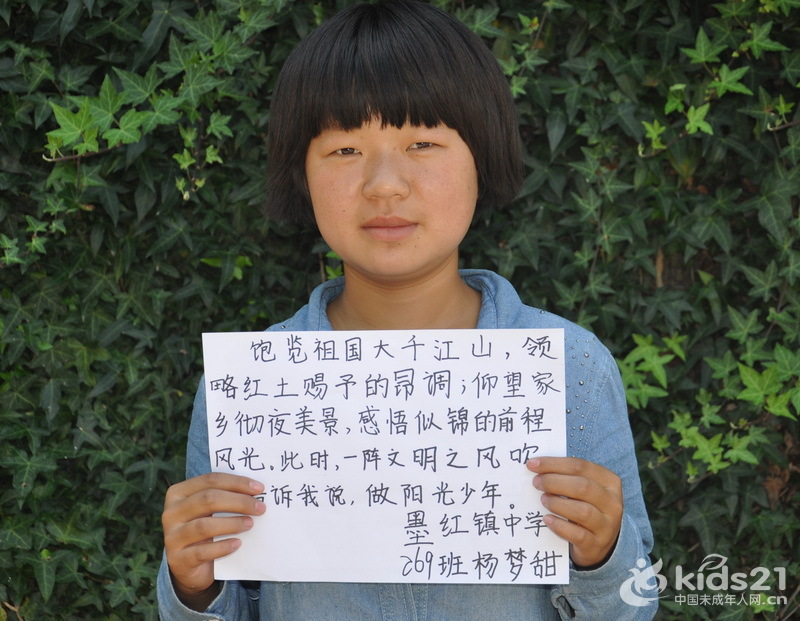 饱览祖国大千江山，领
略红土赐予的昂调；仰望家
乡彻夜美景，感悟似锦的前程
风光。此时，一阵文明之风吹
告诉我说，做阳光少年。
墨红镇中学
269班杨梦甜
kids21
中国未成年人网.cn